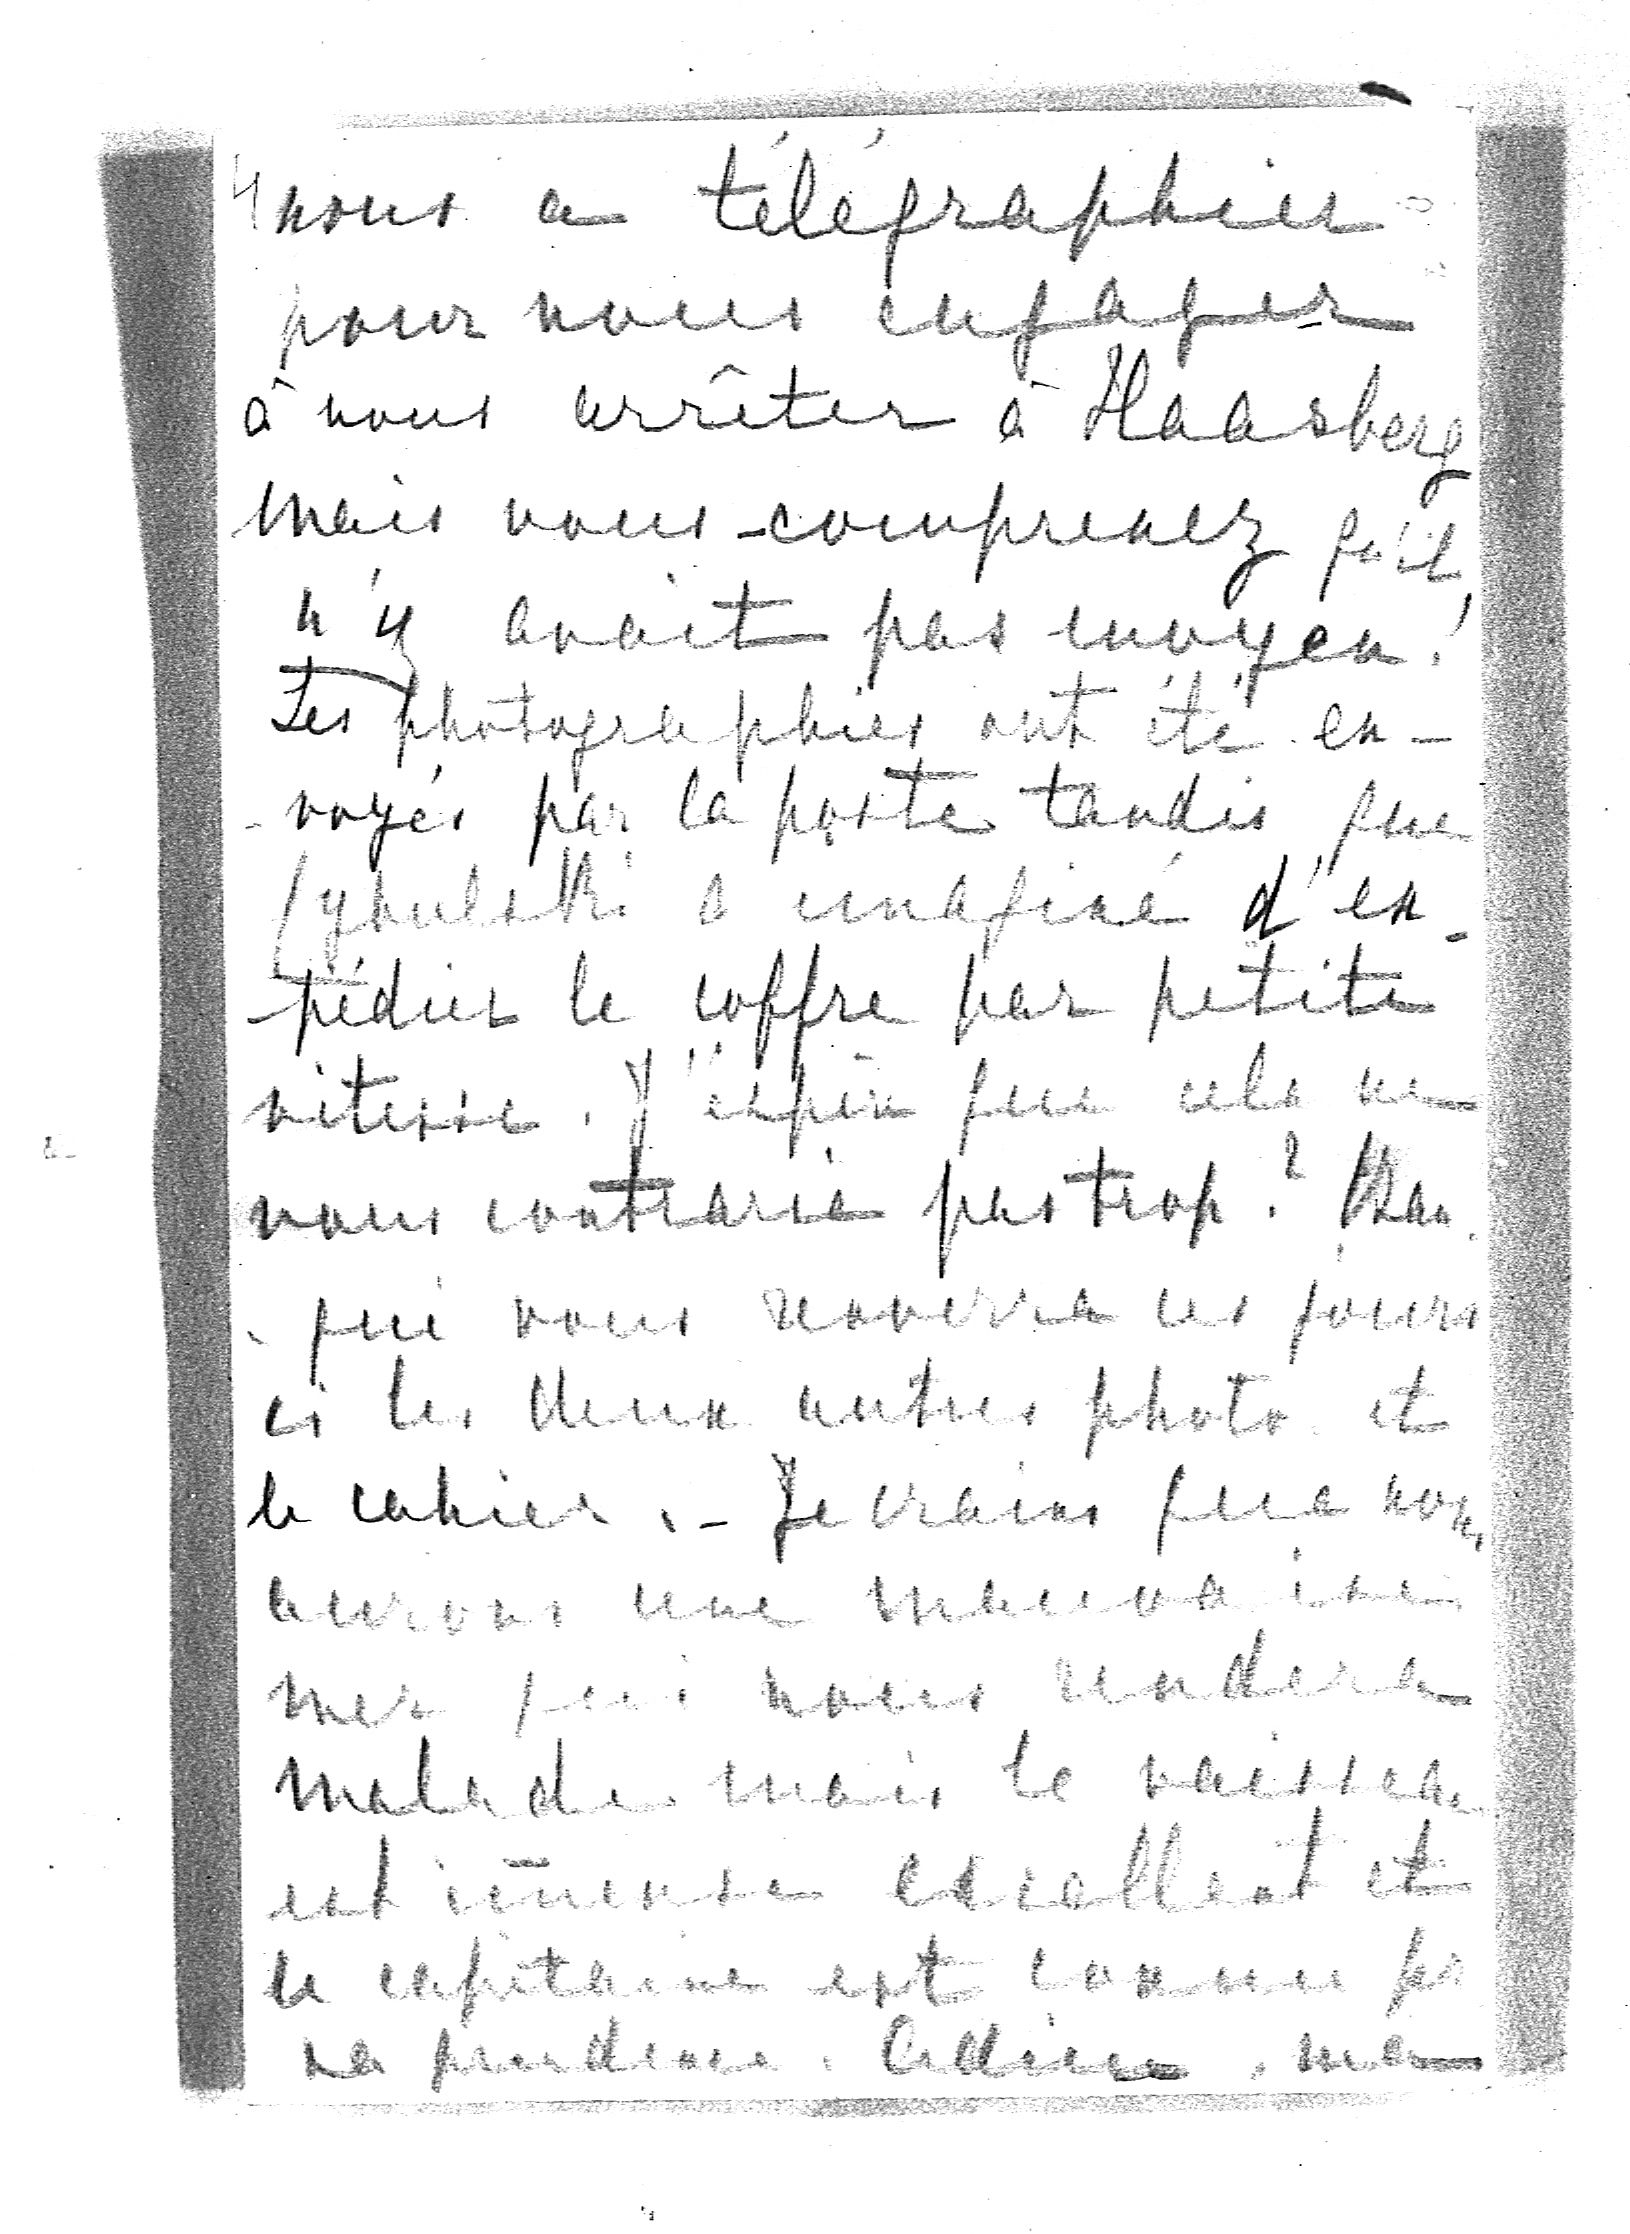 4 nous a télégraphier
pour nous engager
à nous arrêter à Haasberg
mais vous comprenez qu'il
n'y avait pas moyen!
Les photographies ont été en-
-voyés par la poste tandis que
Cybulski a imaginé d'ex-
-pédier le coffre par petite
vitesse. J'éspère que cela ne
vous contrarie pas trop?
qui vous renverra ces jours
ci les deux autres photo et
le cahier. - Je crains que nous
aurons une mauvaise
mer qui nous rendera
malade mais le vaisseau
est imense excellent et
le capitaine est connu pr
sa prudence. Adieu, ma